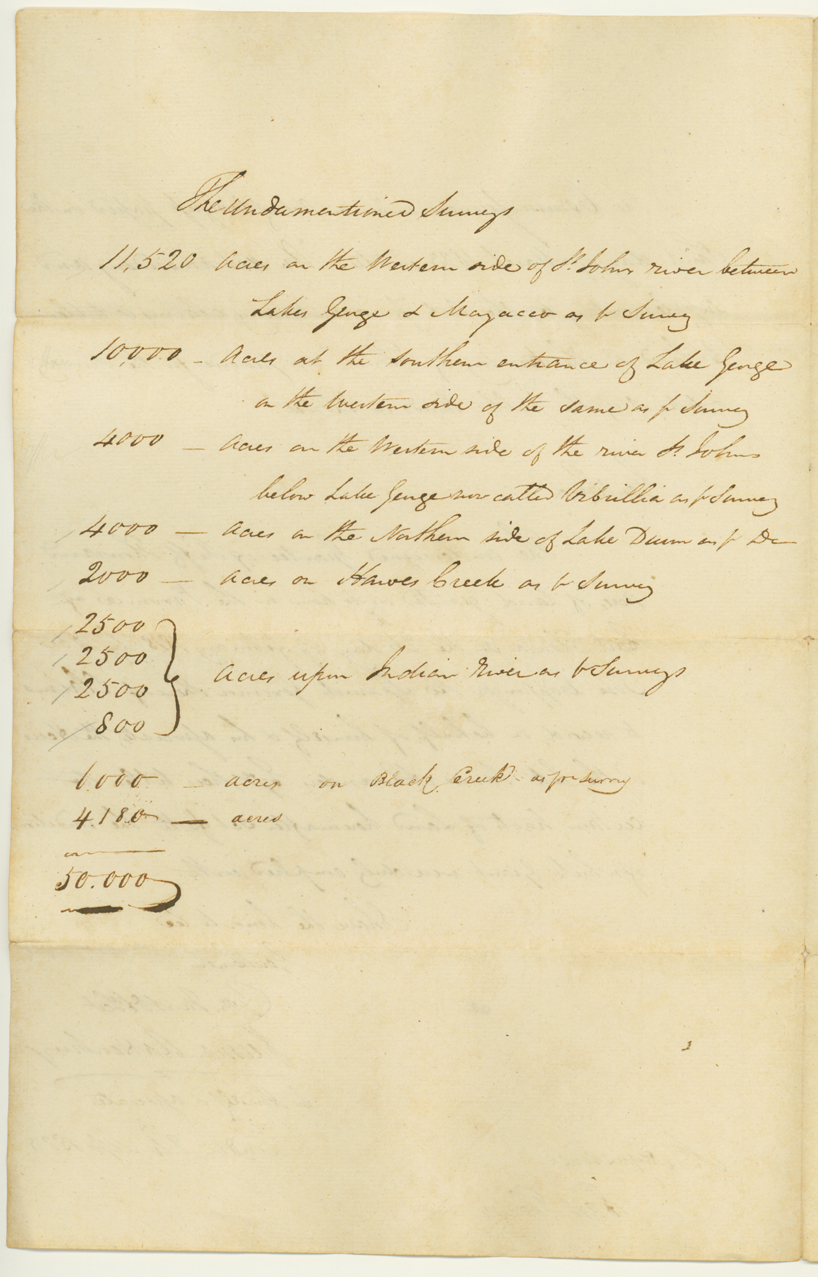 The Undermentioned Surveys
11,520 Acres on the Western side of St Johns river between
Lakes George & as pr Survey
10,000 - Acres at the southern entrance of Lake George
on the Western side of the same as pr Survey
4000 — Acres on the Western side of the river St Johns
below Lake George now called as pr Survey
4000 — Acres on the Northern side of Lake Dunn as pr Do
2000 — acres on Haws Creek as pr Survey
2500
2500
2500
800
Acres upon Indian River as pr Surveys
1,000 — acres on Black Creek as pr Survey
4180 — acres
50.000